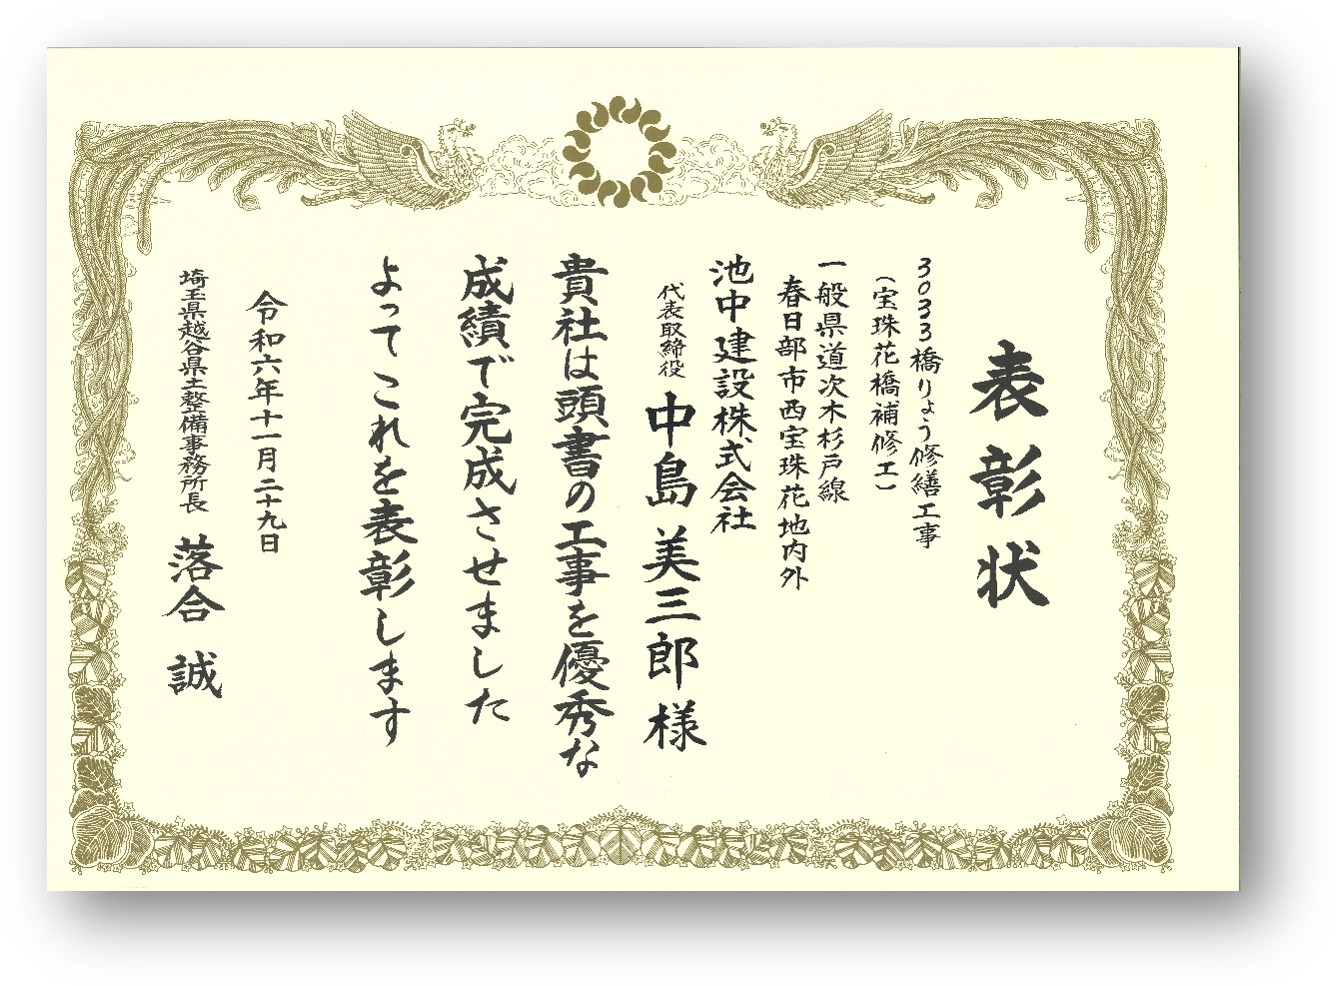 表彰状
3033橋りょう修繕工事
（宝珠花橋補修工）
一般県道次木杉戸線
春日部市西宝珠花地内外
池中建設株式会社
代表取締役 中島 美三郎 様
貴社は頭書の工事を優秀な
成績で完成させました
よってこれを表彰します
令和六年十一月二十九日
埼玉県越谷県土整備事務所長 落合 誠